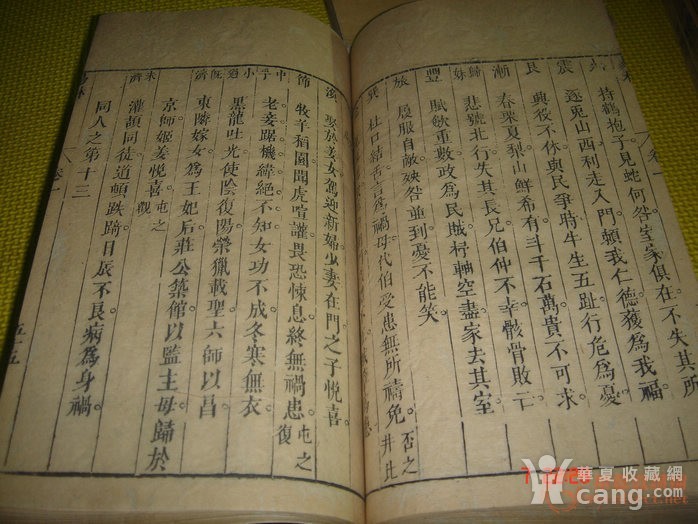 鼎 持鶴抱子見蛇何咎室家俱在不失其所
震 逐兎山西利走入門賴我仁德獲為我福
艮 興役不休與民爭時牛生五趾行危為憂
漸 春粟夏梨山鮮希有斗千石萬貴不可求
歸妹 悲號北行失其長兄伯仲不幸骸骨敗亡
豐 賦斂重數政為民賊杼軸空盡家去其室
旅 履服自敵殃咎並到憂不能笑
巽 杜口結舌言為禍母代伯受患無所禱免 否之井比
渙 娶於姜女駕迎新婦少妻在門之子悅喜
節 牧羊稻園聞虎喧讙畏恐悚息終無禍患 屯之復
中孚 老妾踞機緯絕不知女功不成冬寒無衣
小過 黑龍吐光使陰復陽禁獵載聖六師以昌
既濟 東鄰嫁女為王妃后莊公築館以監主母歸於
京師姬姜悅喜 屯之觀
未濟 灌頭同徒道頓跌踦日辰不良病為身禍
同人之第十三
卷一
五十五
華夏收藏網
cang.com